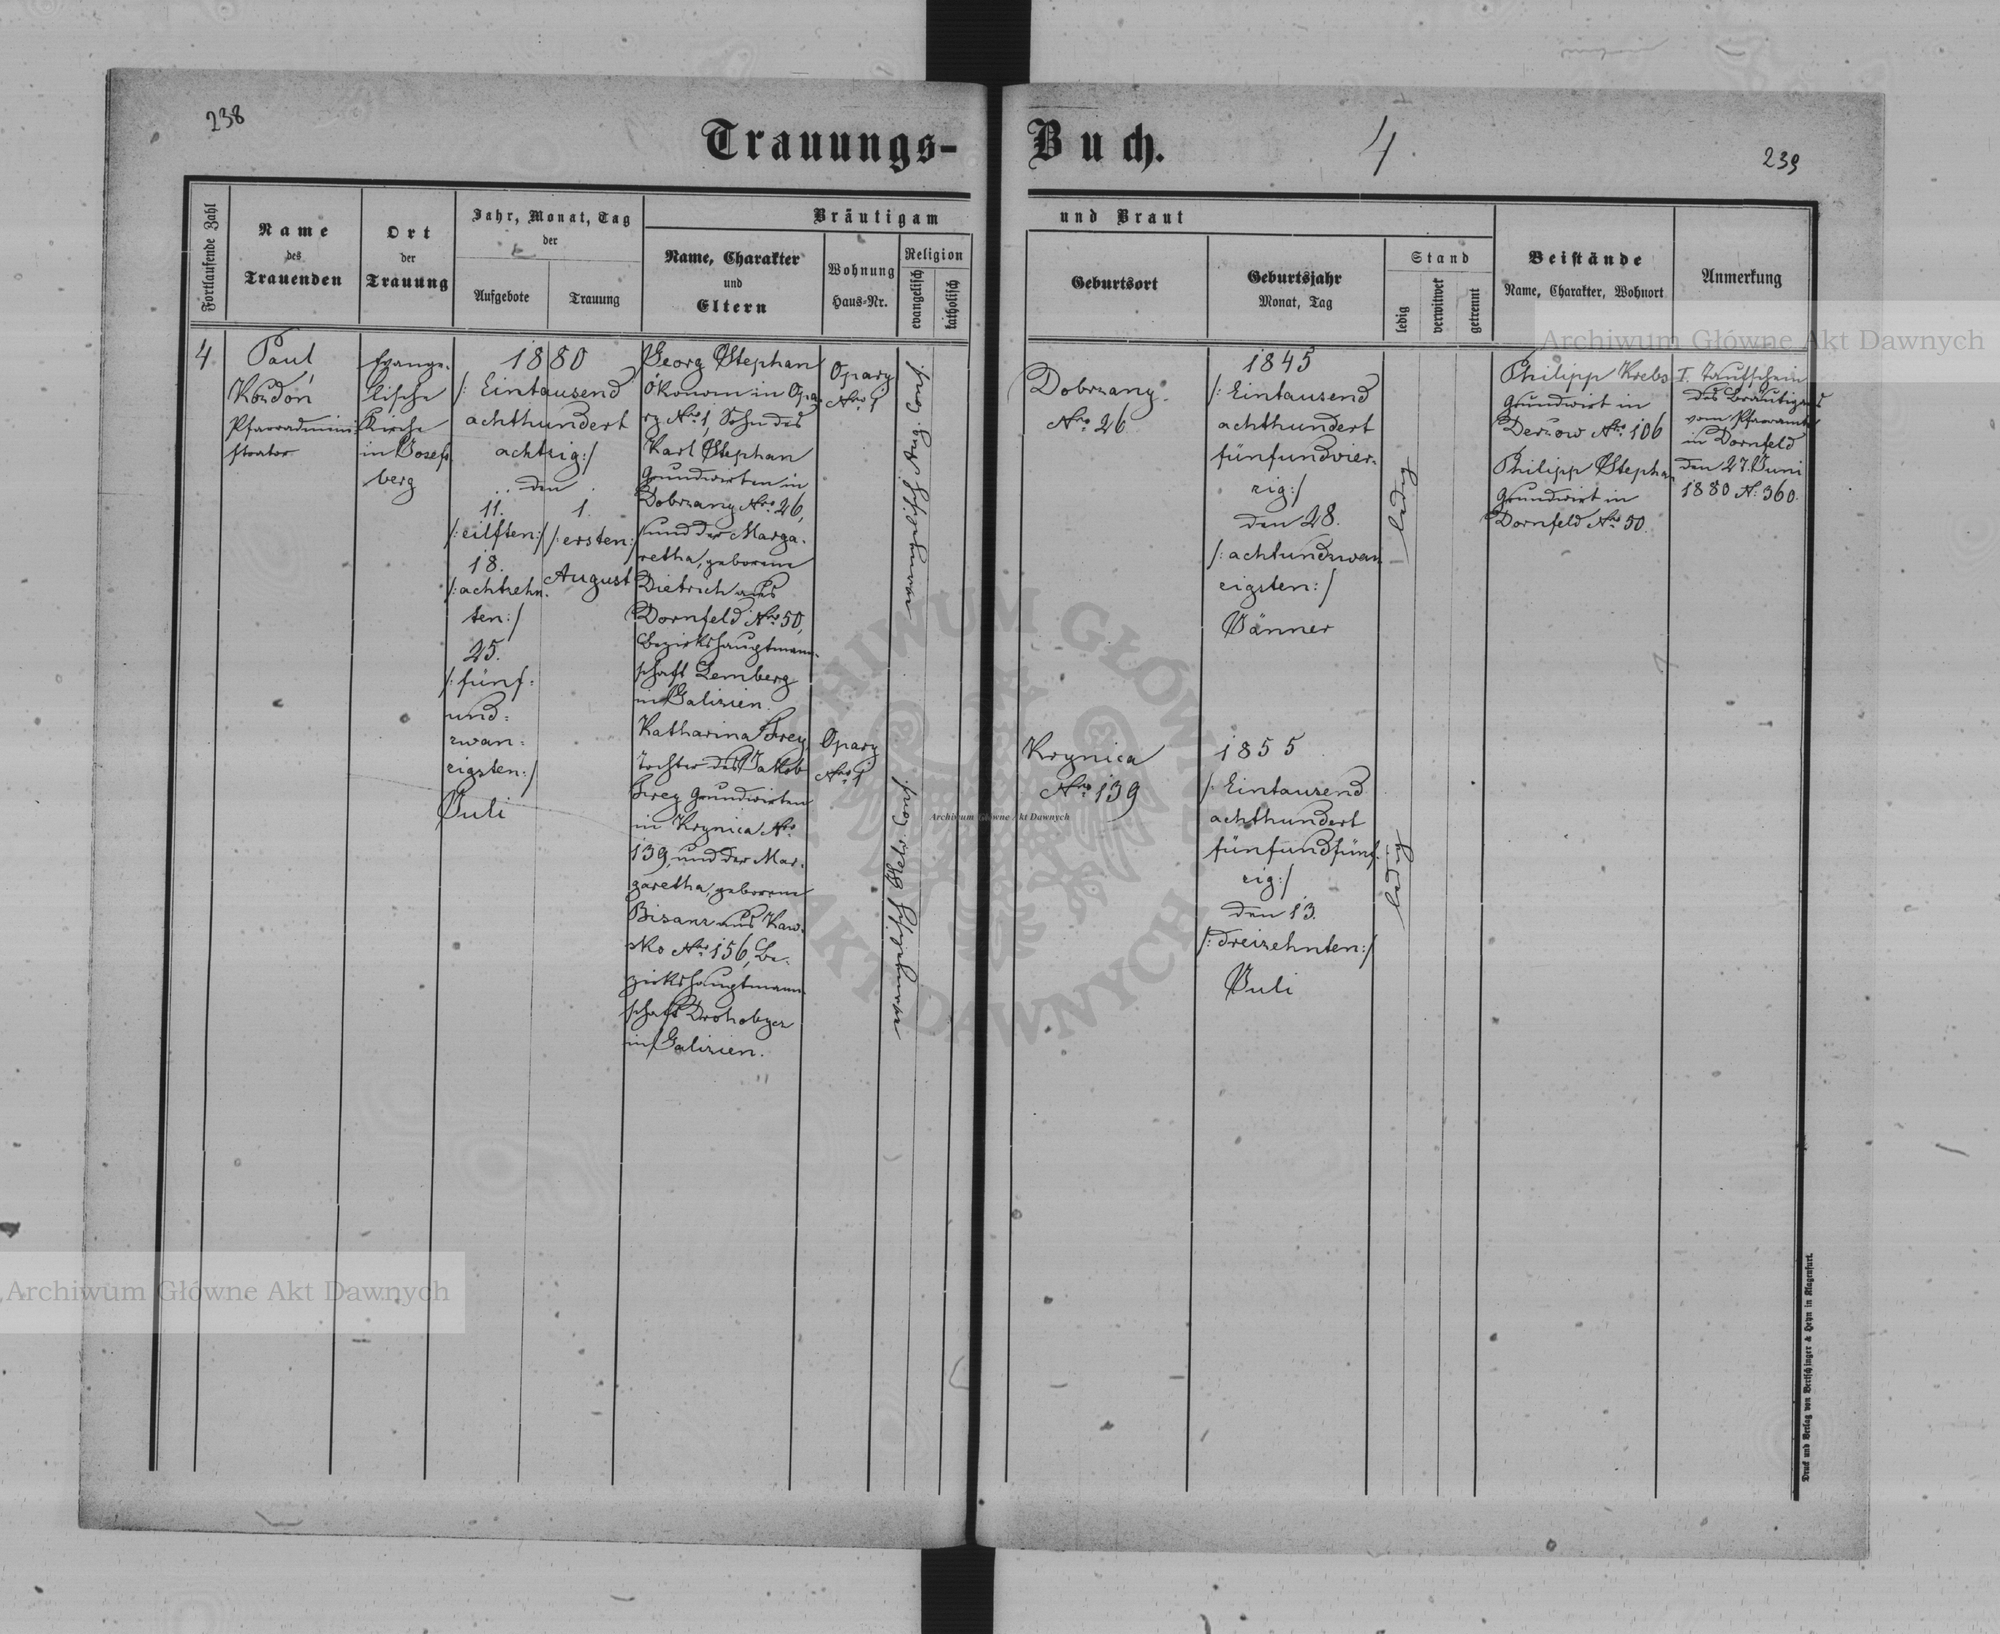 238
Trauungs-
Buch.
4
239
Fortlaufende Zahl
Name
des
Trauenden
Ort
der
Trauung
Jahr, Monat, Tag
der
Aufgebote
Trauung
Bräutigam
Name, Charakter
und
Eltern
Wohnung
Haus-Nr.
Religion
evangelisch
katholisch
und Braut
Geburtsort
Geburtsjahr
Monat, Tag
Stand
ledig
verwitwet
getrennt
Beistände
Name, Charakter, Wohnort
Anmerkung
4
Paul
Kozdoń
Pfarradmini-
strator
Evange-
lische
Kirche
in Josefs-
berg
1880
/: Eintausend
achthundert
achtzig :/
den
11.
/: eilften :/
18.
/: achtzehn-
ten :/
25.
/: fünf-
und-
zwan-
zigsten :/
Juli
1.
/: ersten :/
August
Georg Stephan
Ökonom in Opa-
ry Nro 1, Sohn des
Karl Stephan
Grundwirten in
Dobrzany Nro 26,
und der Marga-
retha, geborene
Dietrich aus
Dornfeld Nro 50,
Bezirkshauptmann-
schaft Lemberg
in Galizien.
Opary
Nro 1
evangelisch Augs. Conf.
Dobrzany
Nro 26
1845
/: Eintausend
achthundert
fünfundvier-
zig :/
den 28.
/: achtundzwan-
zigsten :/
Jänner
ledig
Philipp Krebs
Grundwirt in
Derzow Nro 106
Philipp Stephan
Grundwirt in
Dornfeld Nro 50.
I. Taufschein
des Bräutigams
vom Pfarramte
in Dornfeld
den 27. Juni
1880 N: 360.
Katharina Frey,
Tochter des Jakob
Frey Grundwirten
in Krynica Nro
139, und der Mar-
garetha, geborene
Bisanz aus Kaw-
sko Nro 156, Be-
zirkshauptmann-
schaft Drohobycz
in Galizien.
Opary
Nro 1
evangelisch Helv. Conf.
Krynica
Nro 139
1855
/: Eintausend
achthundert
fünfundfünf-
zig :/
den 13.
/: dreizehnten :/
Juli
ledig
Druck und Verlag von Bertschinger & Heyn in Klagenfurt.
Archiwum Główne Akt Dawnych
Archiwum Główne Akt Dawnych
Archiwum Główne Akt Dawnych
ARCHIWUM GŁÓWNE AKT DAWNYCH